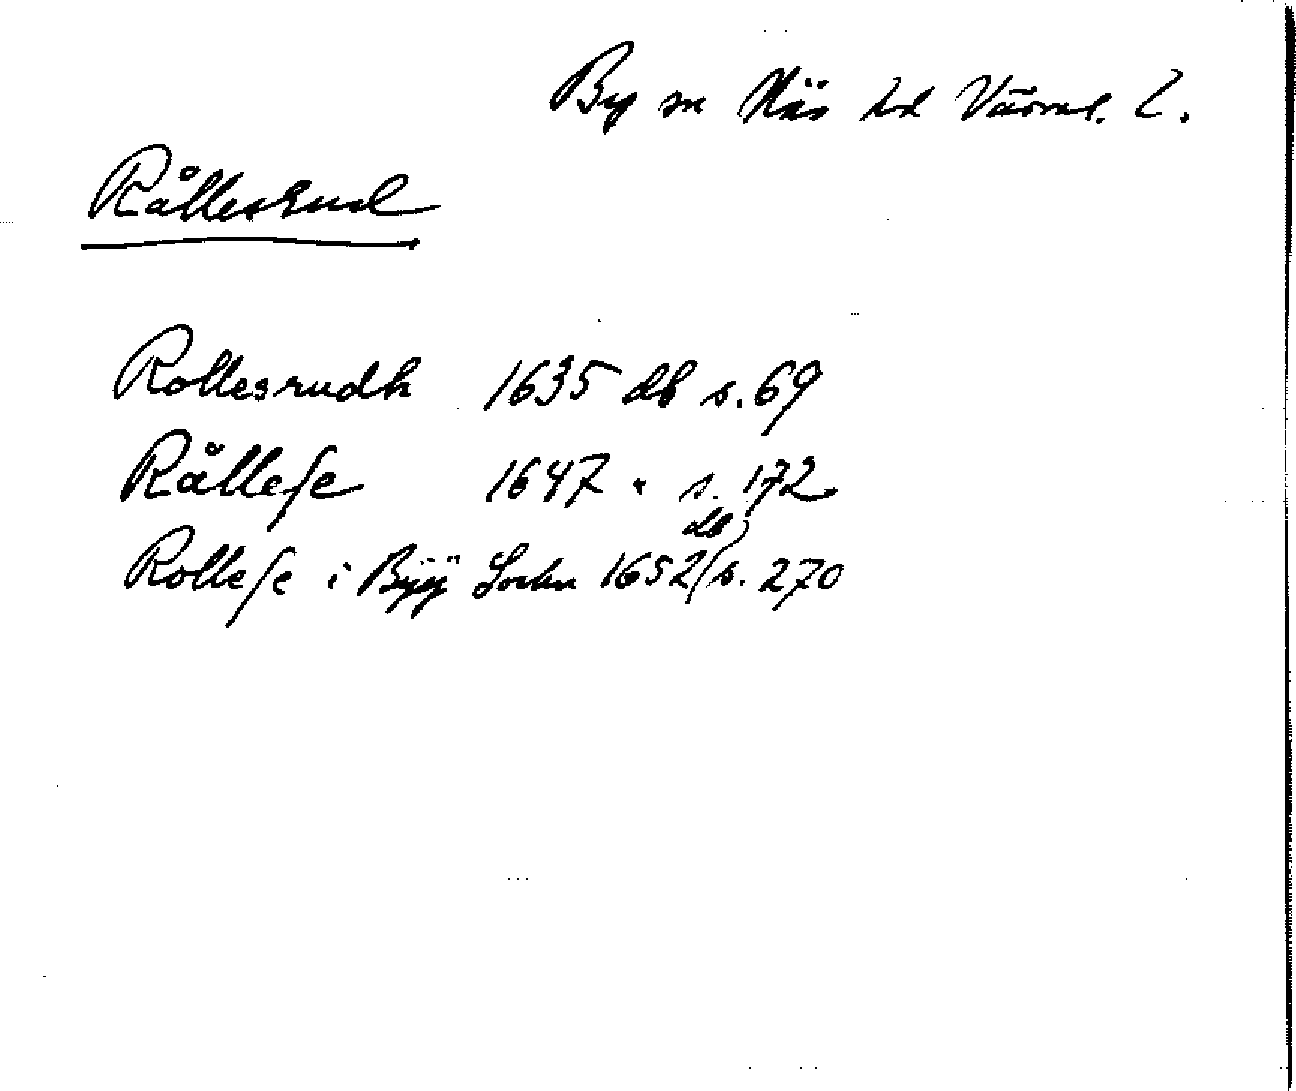 By sn Näs hd Värml. l.
Rållesrud
Rollesrudh 1635 db s. 69
Rålleſe 1647 " s. 172
Rolleſe i Bÿÿ Sochn 1652 db s. 270